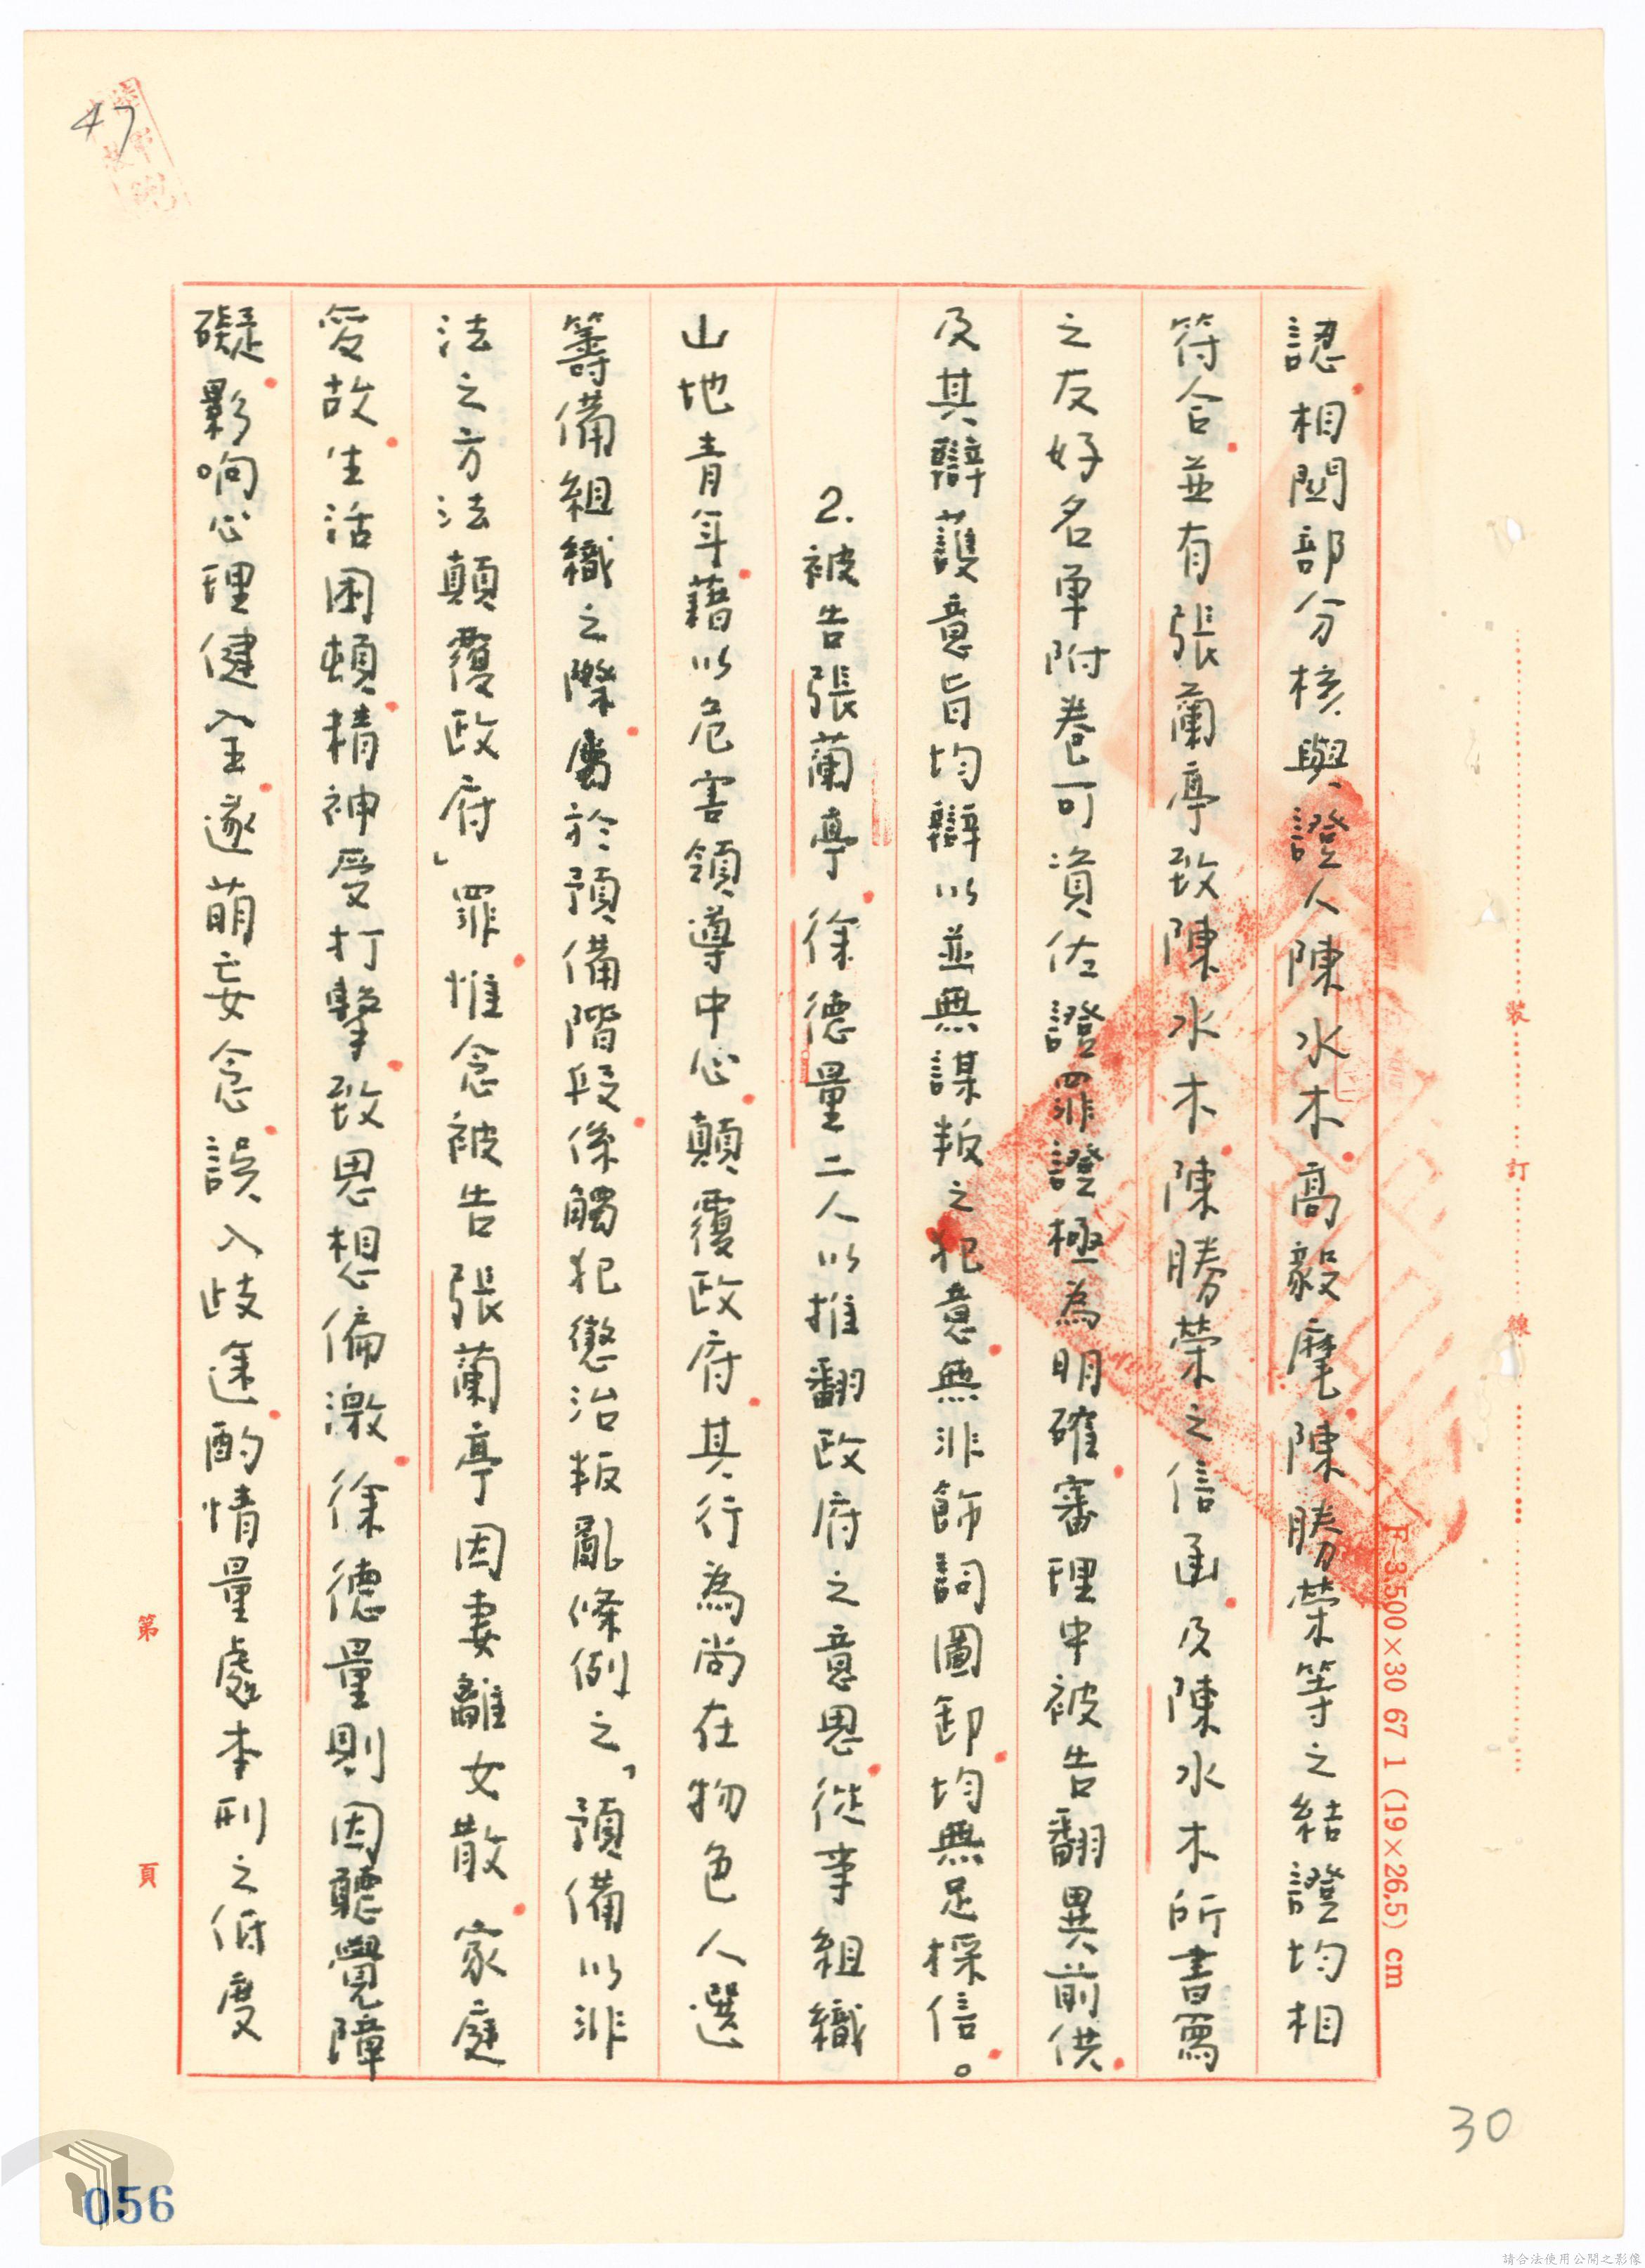 認相関部分核與證人陳水木高毅麾陳勝榮等之結證均相
符合並有張蘭亭致陳水木陳勝榮之信函及陳水木所書寫
之友好名單附卷可資佐證罪證極為明確審理中被告翻異前供
及其辯護意旨均辯以並無謀叛之犯意無非飾詞圖卸均無足採信。
2.被告張蘭亭徐德量二人以推翻政府之意思從事組織
山地青年藉以危害領導中心顛覆政府其行為尚在物色人選
籌備組織之際屬於預備階段係觸犯懲治叛亂條例之「預備以非
法之方法顛覆政府」罪惟念被告張蘭亭因妻離女散家庭
變故生活困頓精神受打擊致思想偏激徐德量則因聽覺障
礙影响心理健全遂萌妄念誤入歧途酌情量處本刑之低度
47
30
056
裝
訂
線
F-3,500×30 67 1 (19×26,5) cm
第
頁
請合法使用公開之影像